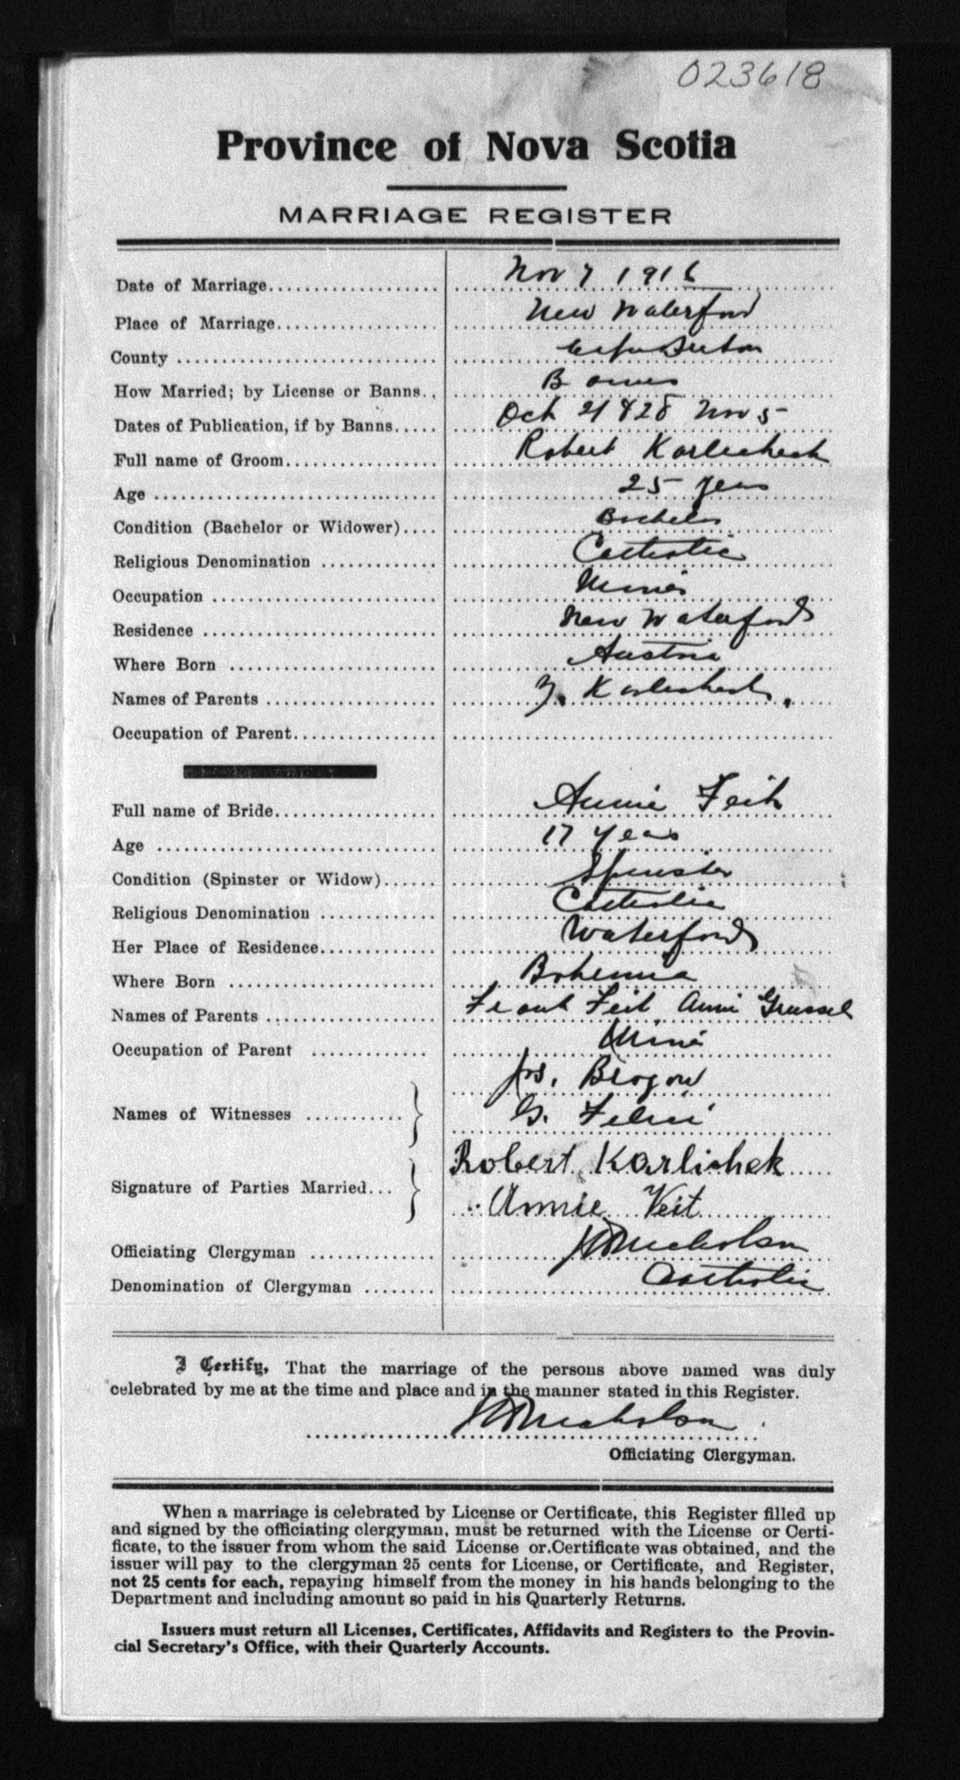 023618
Province of Nova Scotia
MARRIAGE REGISTER
Date of Marriage Nov 7 1916
Place of Marriage New Waterford
County Cape Breton
How Married; by License or Banns Banns
Dates of Publication, if by Banns Oct 21 & 28 Nov 5
Full name of Groom Robert Karlishek
Age 25 years
Condition (Bachelor or Widower) Bachelor
Religious Denomination Catholic
Occupation Miner
Residence New Waterford
Where Born Austria
Names of Parents Karlishek
Occupation of Parent
Full name of Bride Annie Feit
Age 17 years
Condition (Spinster or Widow) Spinster
Religious Denomination Catholic
Her Place of Residence Waterford
Where Born Bohemia
Names of Parents Frank Feit Annie
Occupation of Parent Miner
Jos.
Names of Witnesses
G.
Robert Karlishek
Signature of Parties Married
Annie Veit
Officiating Clergyman Nicholson
Denomination of Clergyman Catholic
I Certify, That the marriage of the persons above named was duly
celebrated by me at the time and place and in the manner stated in this Register.
Nicholson
Officiating Clergyman.
When a marriage is celebrated by License or Certificate, this Register filled up
and signed by the officiating clergyman, must be returned with the License or Certi-
ficate, to the issuer from whom the said License or Certificate was obtained, and the
issuer will pay to the clergyman 25 cents for License, or Certificate, and Register,
not 25 cents for each, repaying himself from the money in his hands belonging to the
Department and including amount so paid in his Quarterly Returns.
Issuers must return all Licenses, Certificates, Affidavits and Registers to the Provin-
cial Secretary's Office, with their Quarterly Accounts.